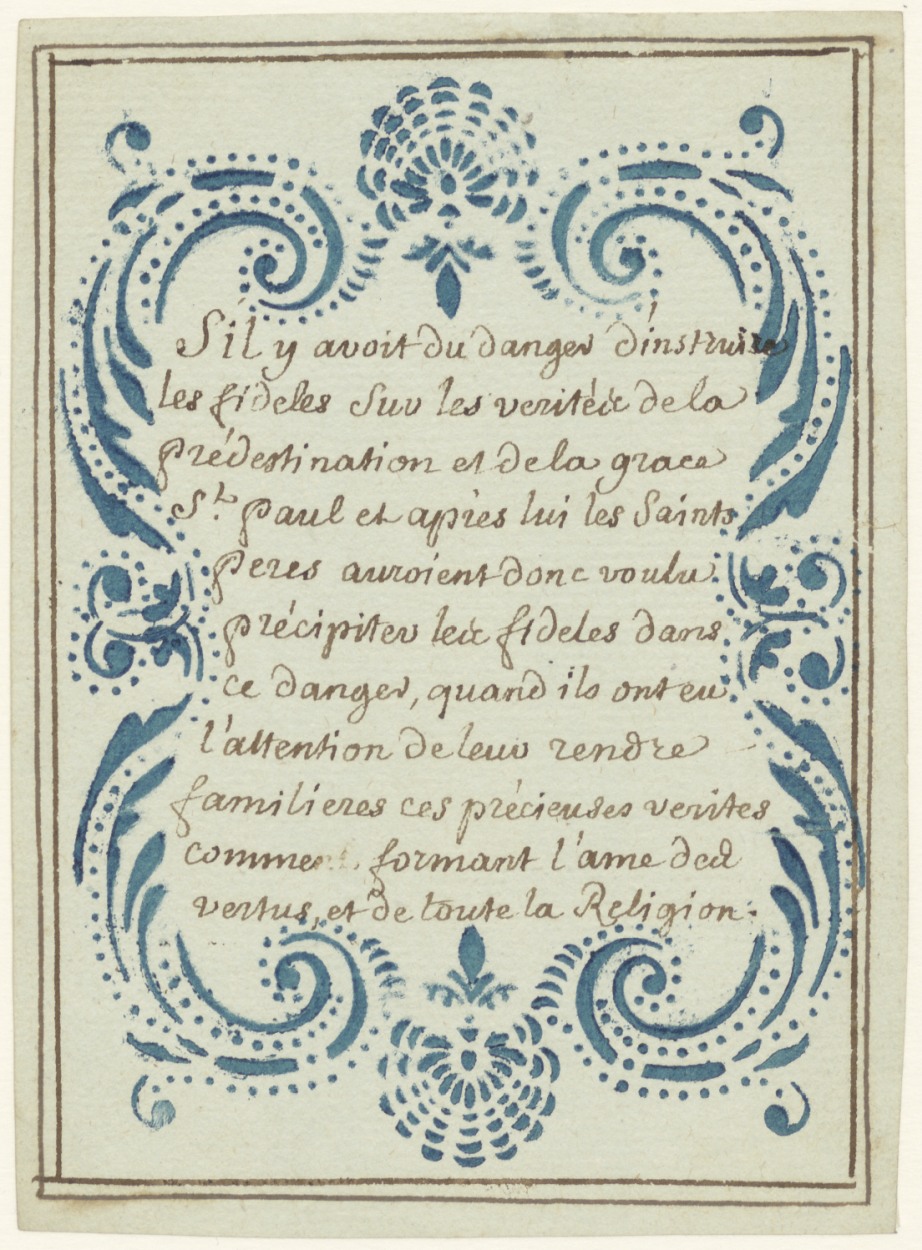 S'il y avoit du danger d'instruire
les fideles sur les veritées de la
prédestination et de la grace
St. Paul et après lui les Saints
Peres auroient donc voulu
précipiter les fideles dans
ce danger, quand ils ont eu
l'attention de leur rendre
familieres ces précieuses verites
comme formant l'ame des
vertus, et de toute la Religion.